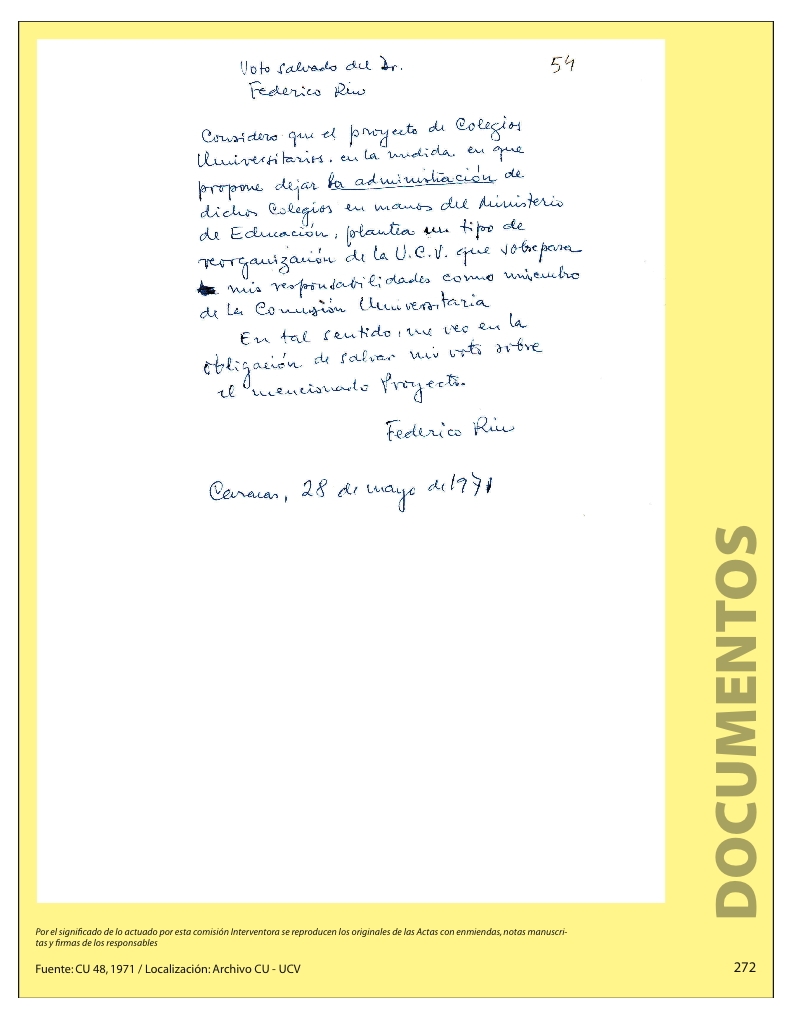 Voto salvado del Dr.
Federico Riu
54
Considero que el proyecto de Colegios
Universitarios, en la medida en que
propone dejar la administración de
dichos Colegios en manos del Ministerio
de Educación, plantea un tipo de
reorganización de la U.C.V. que sobrepasa
mis responsabilidades como miembro
de la Comisión Universitaria
En tal sentido, me veo en la
obligación de salvar mi voto sobre
el mencionado Proyecto.
Federico Riu
Caracas, 28 de mayo de 1971
DOCUMENTOS
Por el significado de lo actuado por esta comisión Interventora se reproducen los originales de las Actas con enmiendas, notas manuscri-
tas y firmas de los responsables
Fuente: CU 48, 1971 / Localización: Archivo CU - UCV
272